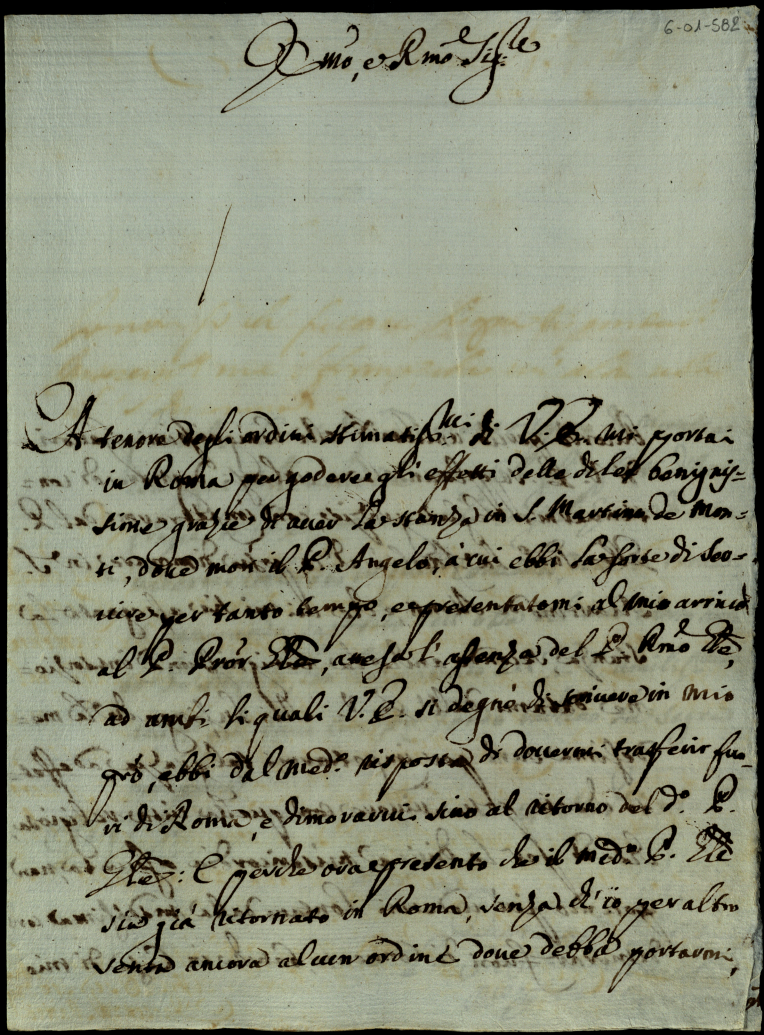 6-01-582
Emo, e Rmo Sigre
A tenore degli ordini stimatissmi di V. E. mi portai
in Roma per godere gli effetti della di lei benignis=
sime grazie di auer la stanza in S. Martino de Mon=
ti, doue morì il P. Angelo, à cui ebbi la sorte di ser=
uire per tanto tempo, e presentatomi al mio arriuo
al P. Prôr Gñle, attesa l'assenza del P. Rmo Gñle,
ad ambi li quali V. E. si degnò di scriuere in mio
prò, ebbi dal med.º risposta di douermi trasferir fuo=
ri di Roma, e dimorarui sino al ritorno del d.º P.
Gñle: E perche ora presento che il med.º P. Gñle
sia già ritornato in Roma, senza ch'io per altro
senta ancora alcun ordine doue debba portarmi,